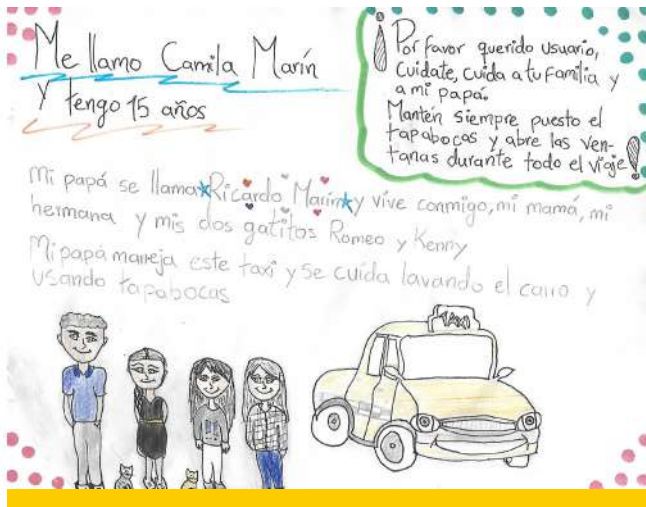 Me llamo Camila Marín
Y tengo 15 años
¡Por favor querido usuario,
Cuidate, cuida a tu familia y
a mi papá.
Mantén siempre puesto el
tapabocas y abre las ven-
tanas durante todo el viaje!
Mi papá se llama Ricardo Marín y vive conmigo, mi mamá, mi
hermana y mis dos gatitos Romeo y Kenny
Mi papá maneja este taxi y se cuida lavando el carro y
usando tapabocas
TAXI